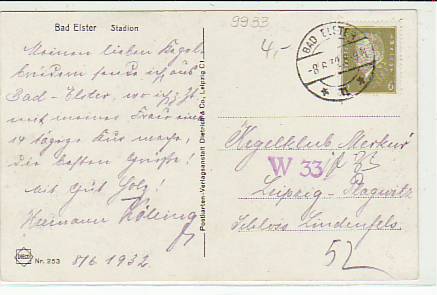 Bad Elster   Stadion
9933
4,-
BAD ELSTER
-8.6.32
Meinen lieben Kegel-
brüdern sende ich aus
Bad-Elster, wo ich z. Zt.
mit meiner Frau eine
14 tägige Kur mache,
die besten Grüße!
Mit Gut Holz!
Hermann
8/6 1932.
Postkarten-Verlagsanstalt Dietrich & Co., Leipzig C1
Nr. 253
Kegelklub Merkur
W 33
Leipzig-Plagwitz
Schloss Lindenfels.
52